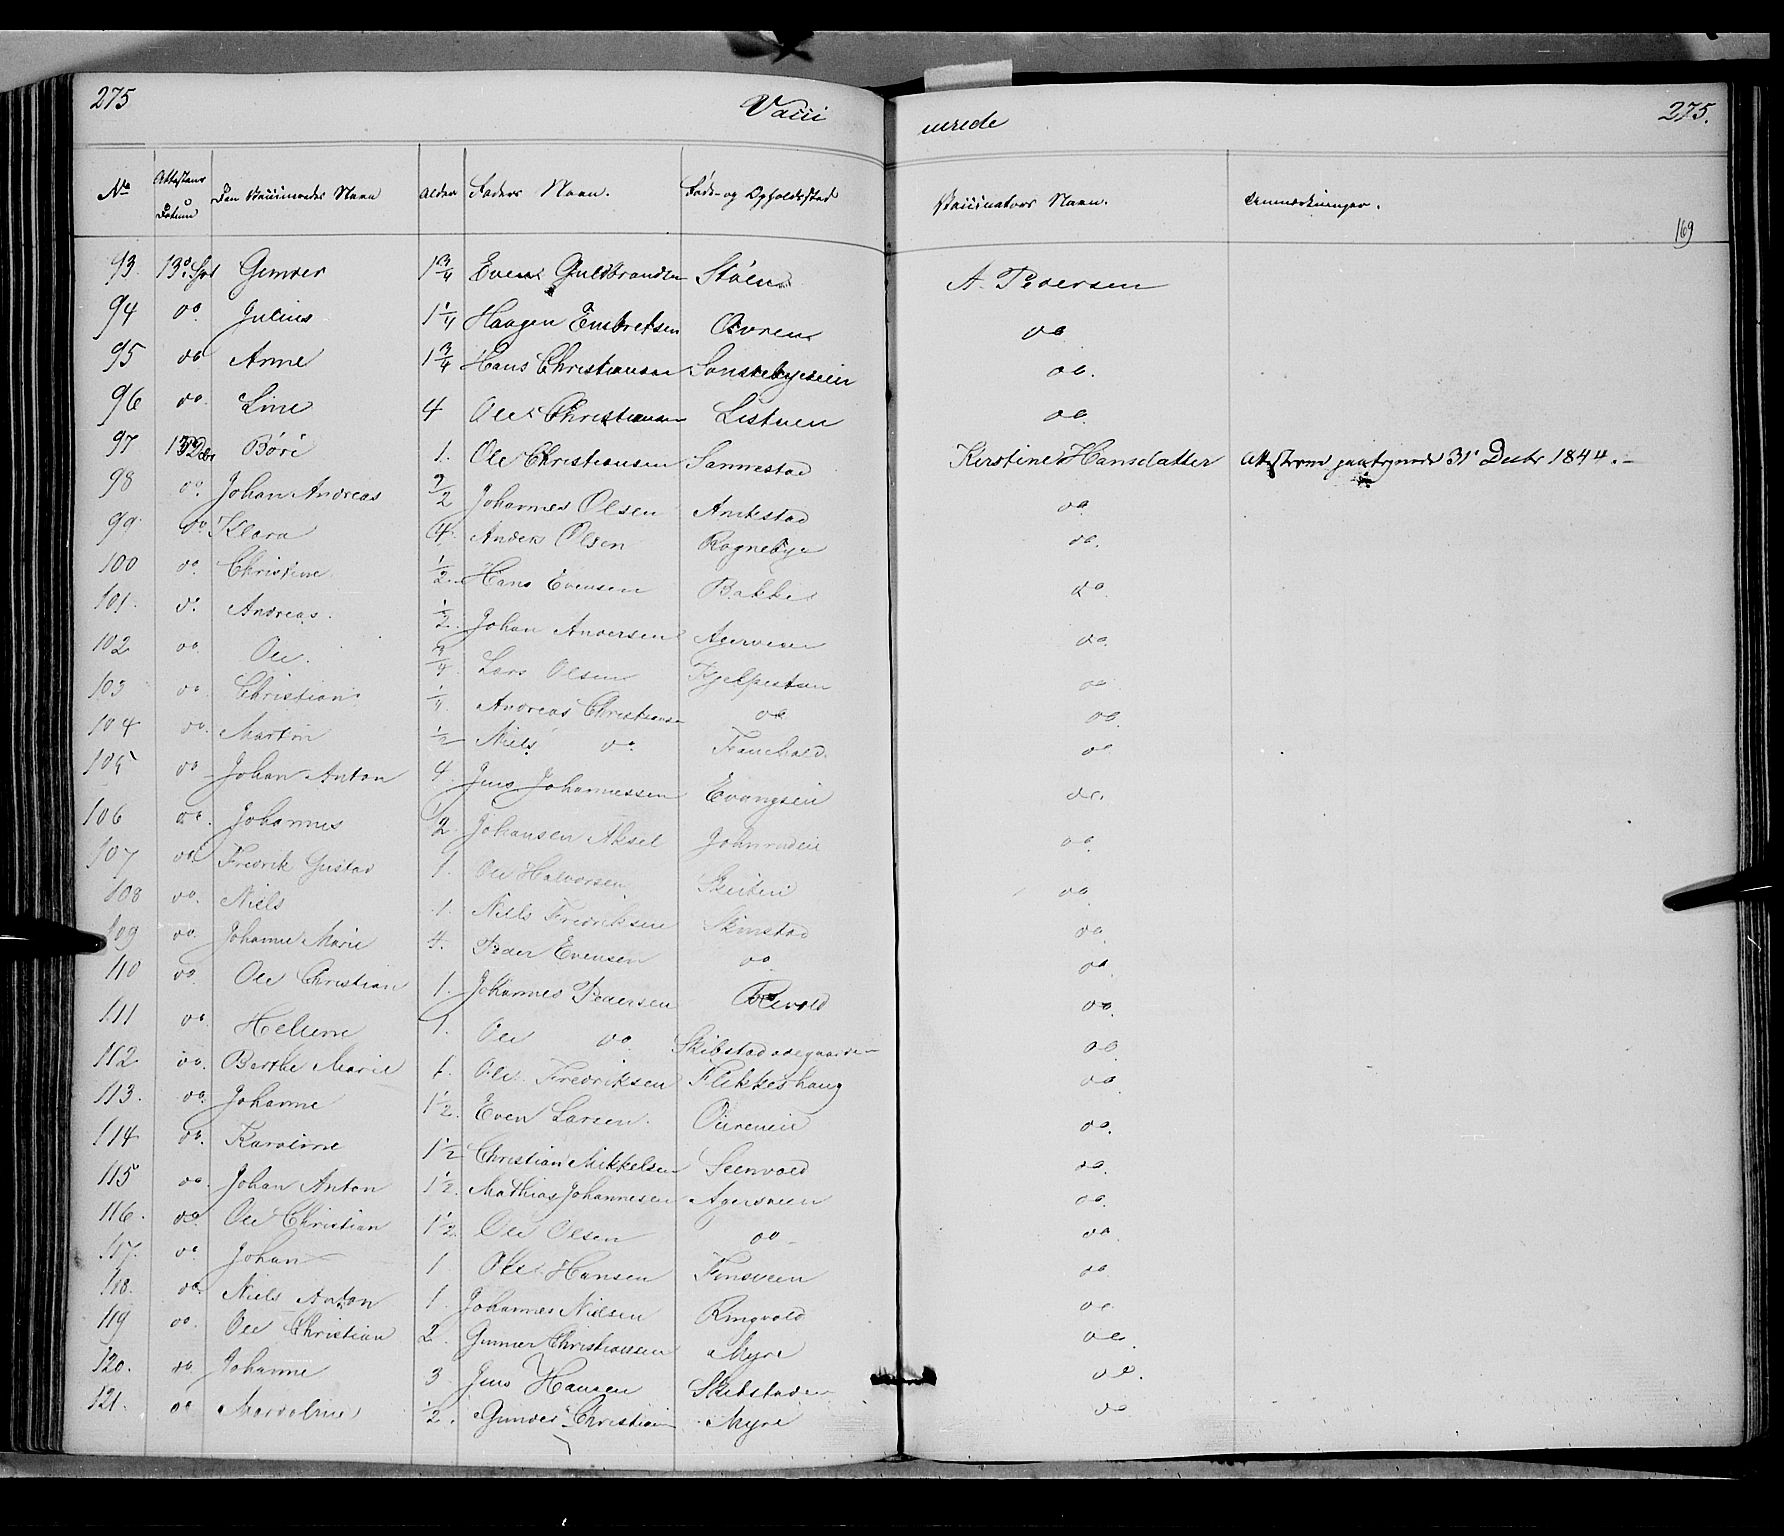 275 Vacci nerede 275.
No Attestens Datum Den Vaccineredes Navn Alder Faders Navn. Føde- og Opholdssted Vaccinators Navn. Anmærkninger.
169
93. 13de Gunder 1 3/4 Even Guldbrandsen Støen A. Pedersen
94 do. Julius 1 1/4 Haagen Embretsen do.
95 do Anne 1 3/4 Hans Christiansen do.
96 do. Line 4 Ole Christiansen Listuen do.
97 Børe 1. Ole Christiansen Sannestad Kirstine Hansdatter 31 Decbr 1844.-
98 do. Johan Andreas Johannes Olsen do.
99 do. Klara 4. Anders Olsen Ragnebye do.
100 do. Christine 1/2 Hans Evensen Bakke do.
101. do. Andreas. 1/2. Johan Andersen do.
102 do. Ole. 3/4 Lars Olsen do.
103 do. Christian 1/4 Andreas Christiansen do do.
104 do. Martin 1/2 Niels do. do
105 do Johan Anton 4. Jens Johannessen do.
106 do. Johannes 2. Johansen Aksel do
107 do. Fredrik Gustav 1. Ole Halvorsen do.
108 do. Niels 1. Niels Fredriksen Skinstad do.
109 do. Johanne Marie 4. Peder Evensen do. do.
110 do. Ole Christian 1. Johannes Pedersen do.
111 do. Helene 1. Ole do. Skibstadødegaarden do.
112 do. Berthe Marie 1. Ole Fredriksen Flikkeshaug do.
113. do. Johanne 1 1/2. Even Larsen. do.
114 do. Karoline 1 1/2 Christian Mikkelsen do.
115 do. Johan Anton 1 1/2. Mathias Johannesen Agersveen do.
116. do. Ole Christian 1 1/2. Ole Olsen do- do.
117. do. Johan 1 Ole Hansen Finsveen do
118. do. Niels Anton 1 Johannes Nielsen Ringvold do.
119 do. Ole Christian 2. Gunner Christiansen Myre do.
120. do Johanne 3 Jens Hansen Skibstaden do.
121. do 1/2. Gunder Christian Myre do